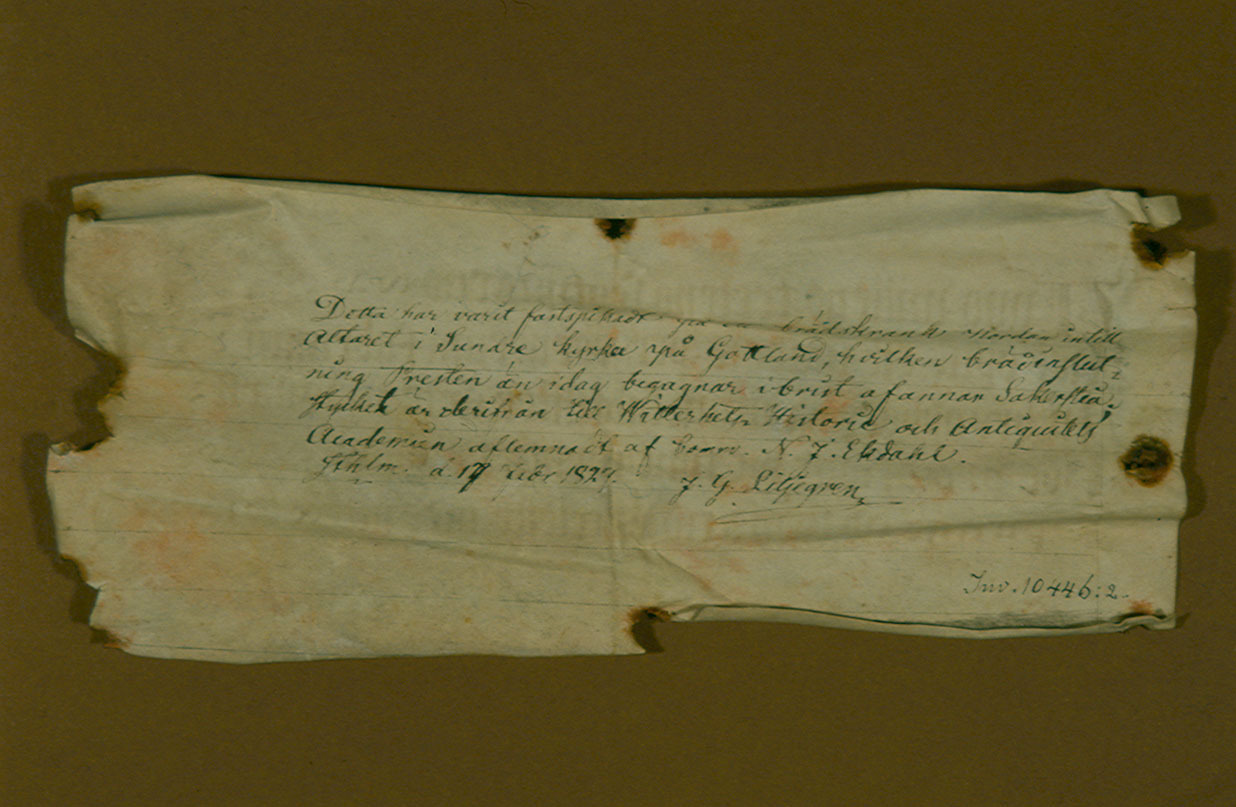 Detta har varit fastspikadt på en brädskrank Nordan intill
Altaret i Sundre kyrka på Gottland, hvilken brädinslut-
ning Presten än idag begagnar i brist af annan Sakerstia.
Stycket är derifrån till Witterhets Historie och Antiquitets
Academien aflemnadt af Comm. N. J. Ekdahl.
Sthlm. d. 17 1827. J. G. Liljegren
Inv. 10446:2.